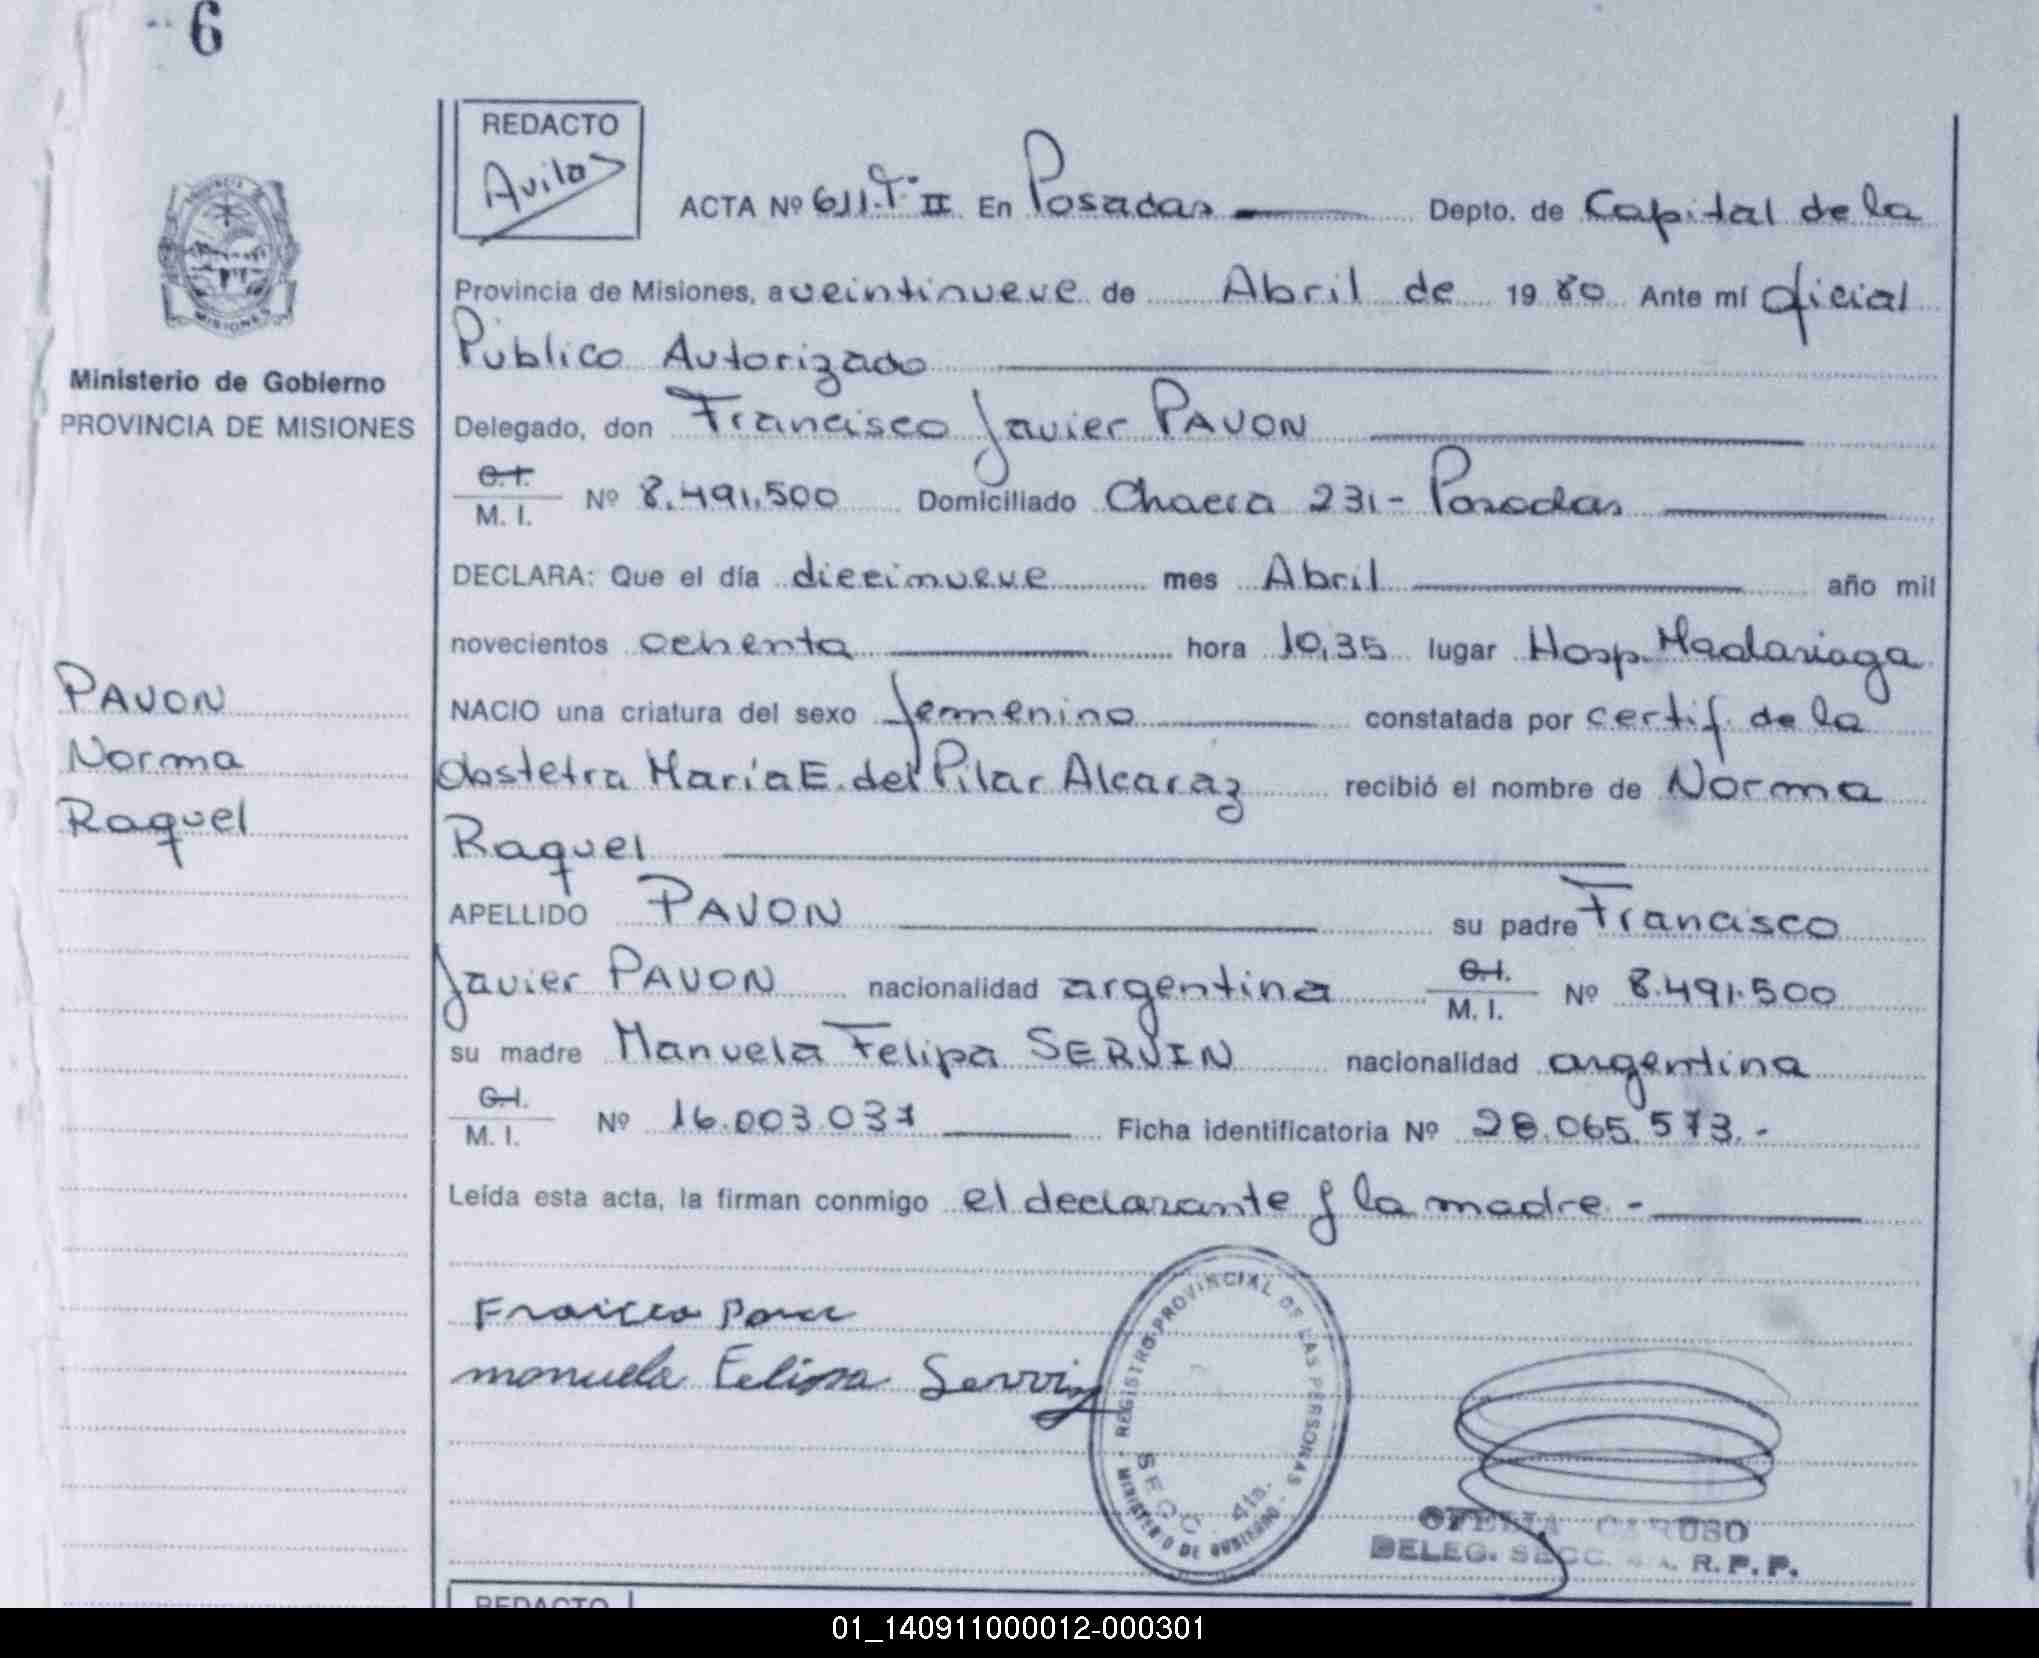 6
REDACTO
Avila
ACTA Nº 611.Tº II En Posadas Depto. de Capital de la
Provincia de Misiones, a veintinueve de Abril de 1980 Ante mí Oficial
Público Autorizado
Delegado, don Francisco Javier PAVON
C.I.
M. I. Nº 8.491.500 Domiciliado Chacra 231 - Posadas
DECLARA: Que el día diecinueve mes Abril año mil
novecientos ochenta hora 10,35 lugar Hosp. Madariaga
NACIO una criatura del sexo femenino constatada por certif. de la
obstetra María E. del Pilar Alcaraz recibió el nombre de Norma
Raquel
APELLIDO PAVON su padre Francisco
Javier PAVON nacionalidad argentina C.I. M. I. Nº 8.491.500
su madre Manuela Felipa SERVIN nacionalidad argentina
C.I.
M. I. Nº 16.003.037 Ficha identificatoria Nº 28.065.573.-
Leída esta acta, la firman conmigo el declarante y la madre.-
manuela Felipa Servin
REGISTRO PROVINCIAL DE LAS PERSONAS
MINISTERIO DE GOBIERNO
SECC. 4ta.
OFELIA CARUSO
DELEG. SECC. 4A. R.P.P.
REDACTO
MISIONES
Ministerio de Gobierno
PROVINCIA DE MISIONES
PAVON
Norma
Raquel
01_140911000012-000301